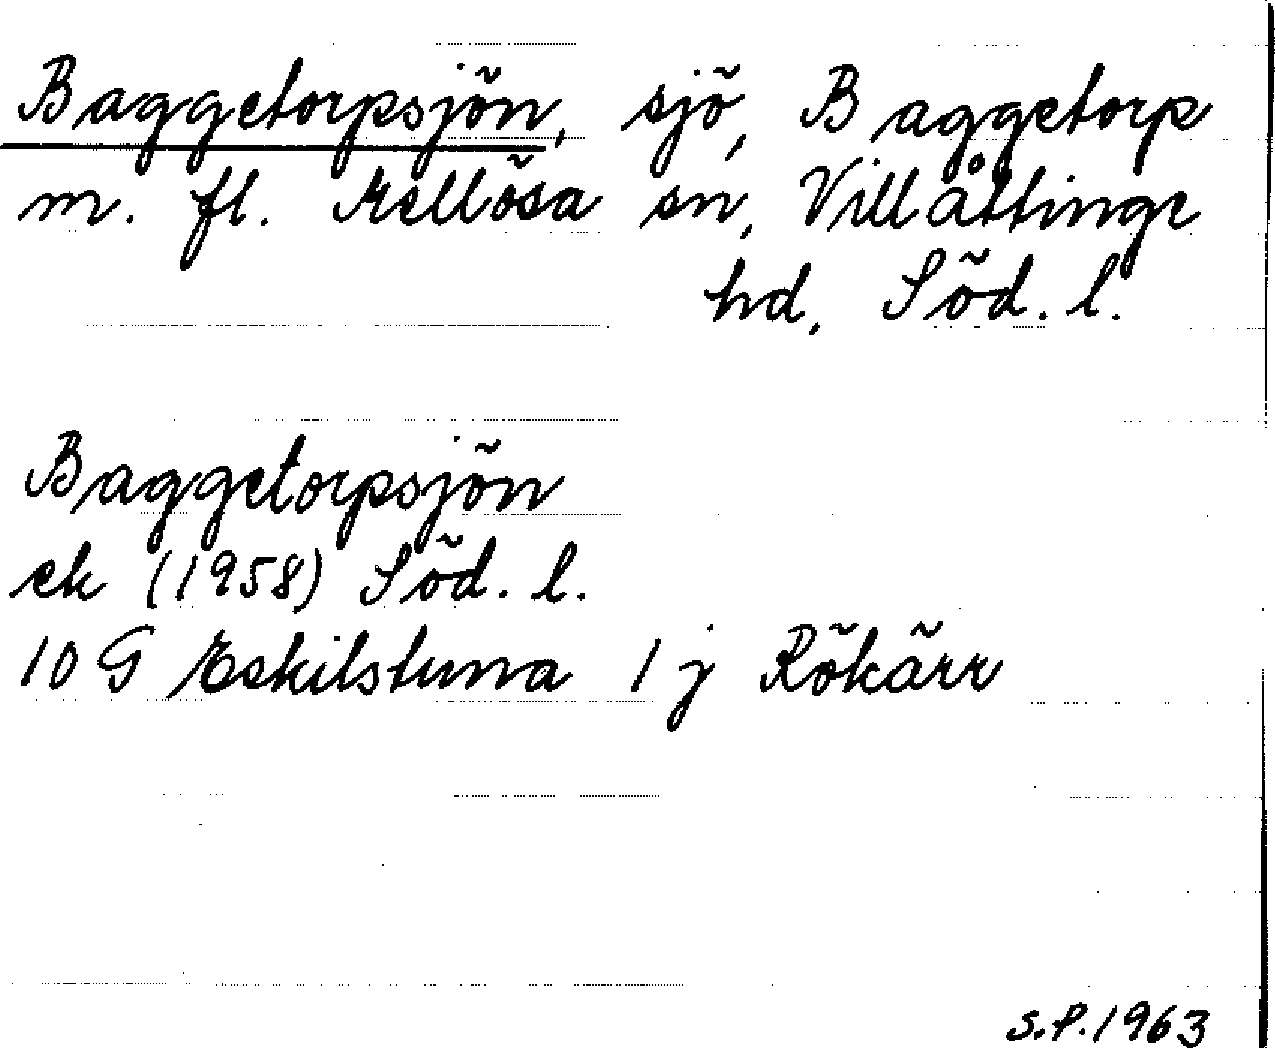 Baggetorpsjön, sjö, Baggetorp
m. fl. Mellösa sn, Villåttinge
hd, Söd. l.
Baggetorpsjön
ek (1958) Söd. l.
10 G Eskilstuna 1 j Rökärr
S.P. 1963